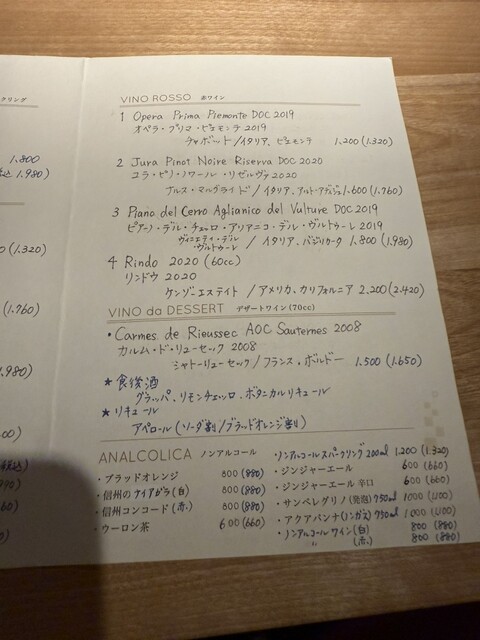 クリング
1.800
込 1.980)
(1.320)
(1.760)
1.980)
00)
税込)
VINO ROSSO 赤ワイン
1 Opera Prima Piemonte DOC 2019
オペラ・プリマ・ピエモンテ 2019
チャボット/イタリア、ピエモンテ 1.200 (1.320)
2 Jura Pinot Noire Riserva DOC 2020
ユラ・ピノ・ノワール・リゼルヴァ 2020
ナルス・マルグライド/イタリア、アルト・アディジェ 1.600 (1.760)
3 Piano del Cerro Aglianico del Vulture DOC 2019
ピアーノ・デル・チェッロ・アリアニコ・デル・ヴルトゥーレ 2019
ヴィニエティ・デル・ヴルトゥーレ / イタリア、バジリカータ 1.800 (1.980)
4 Rindo 2020 (60cc)
リンドウ 2020
ケンゾーエステイト / アメリカ、カリフォルニア 2.200 (2.420)
VINO da DESSERT デザートワイン (70cc)
・Carmes de Rieussec AOC Sauternes 2008
カルム・ド・リューセック 2008
シャトーリューセック / フランス、ボルドー 1.500 (1.650)
★食後酒
グラッパ、リモンチェッロ、ボタニカルリキュール
★リキュール
アペロール (ソーダ割 / ブラッドオレンジ割)
ANALCOLICA ノンアルコール
・ブラッドオレンジ 800 (880)
・信州のナイアガラ (白) 800 (880)
・信州コンコード (赤) 800 (880)
・ウーロン茶 600 (660)
・ノンアルコールスパークリング 200ml 1.200 (1.320)
・ジンジャーエール 600 (660)
・ジンジャーエール 辛口 600 (660)
・サンペレグリノ (発泡) 750ml 1000 (1100)
・アクアパンナ (ノンガス) 750ml 1000 (1100)
・ノンアルコールワイン (白) 800 (880)
〃 (赤) 800 (880)